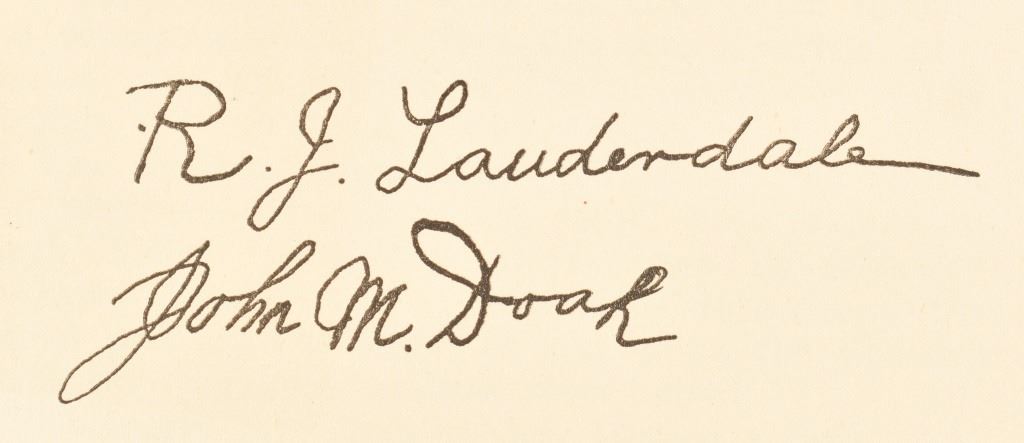 R. J. Lauderdale
John M. Doak